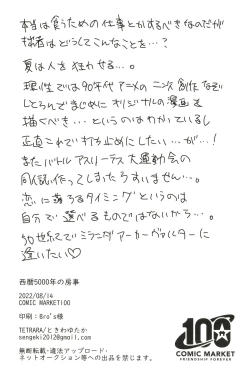 本当は食うための仕事とかするべきなのだが
拙者はどうしてこんなことを…?
夏は人を狂わせる…。
理性では90年代アニメの二次創作など
しとらんでまじめにオリジナルの漫画を
描くべき…というのはわかっているし
正直これで打ち止めにしたい…が…!
またバトルアスリーテス大運動会の
同人誌作ってしまったらすいません…。
恋に落ちるタイミングというのは
自分で選べるものではないから…。
50世紀でミランダ アーカーヴァルターに
逢いたい♡
西暦5000年の房事
2022/08/14
COMIC MARKET100
印刷:Bro's様
TETRARA/ときわゆたか
sengeki2012@gmail.com
無断転載・違法アップロード・
ネットオークション等への出品を禁じます。
100
COMIC MARKET
FRIENDSHIP FOREVER